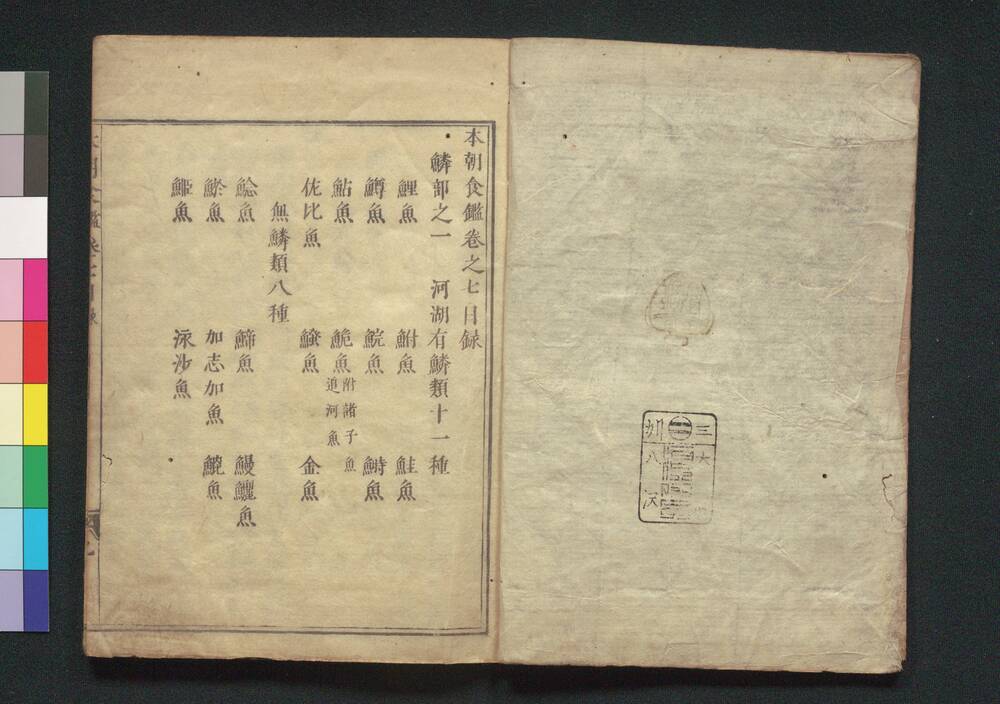 本朝食鑑卷之七目録
鱗部之一 河湖有鱗類十一種
鯉魚 鮒魚 鮭魚
鱒魚 鯇魚 鰣魚
鮎魚 鮠魚 附諸子魚 追河魚
佐比魚 鱵魚 金魚
無鱗類八種
鯰魚 鯷魚 鰻鱺魚
魚 加志加魚 魚
魚 泳沙魚
三 大
川 八